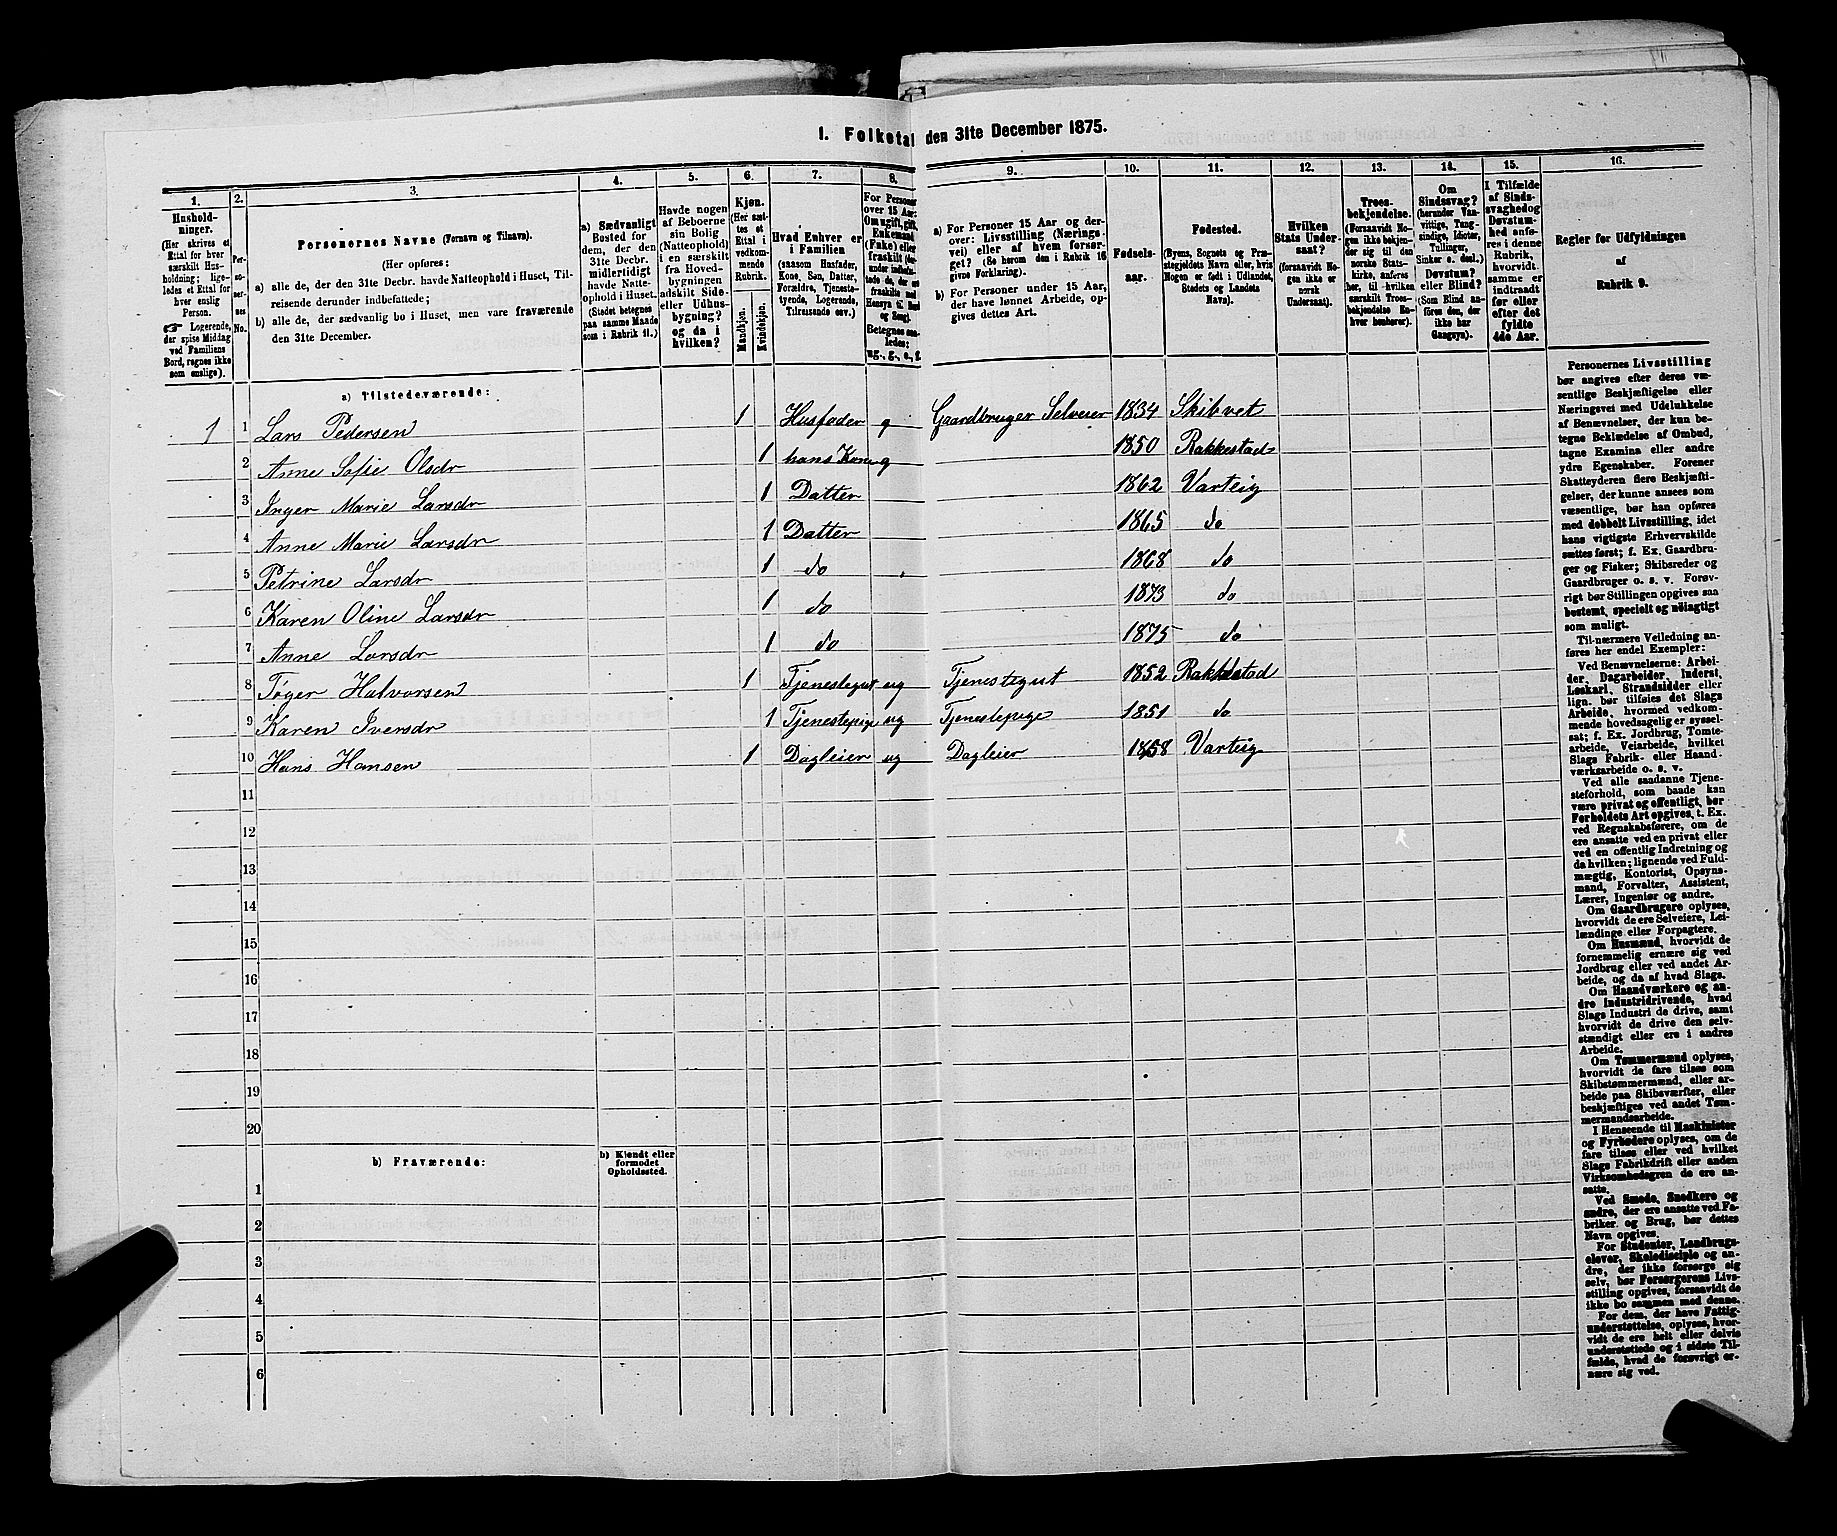 I. Folketal den 31te December 1875.
1. 2. 3. 4. 5. 6. 7. 8. 9. 10. 11. 12. 13. 14. 15. 16.
Hushold-
ninger.
(Her skrives et
Ettal for hver
særskilt Hus-
holdning; lige-
ledes et Ettal for
hver enslig
Person.
☞ Logerende,
der spise Middag
ved Familiens
Bord, regnes ikke
som enslige).
Per-
so-
ner-
nes
No.
Personernes Navne (Fornavn og Tilnavn).
(Her opføres:
a) alle de, der den 31te Decbr. havde Natteophold i Huset, Til-
reisende derunder indbefattede;
b) alle de, der sædvanlig bo i Huset, men vare fraværende
den 31te December.
a) Sædvanligt
Bosted for
dem, der den
31te Decbr.
midlertidigt
havde Natte-
ophold i Huset.
(Stedet betegnes
paa samme Maade
som i Rubrik 11.)
Havde nogen
af Beboerne
sin Bolig
(Natteophold)
i en særskilt
fra Hoved-
bygningen
adskilt Side-
eller Udhus-
bygning?
og da i
hvilken?
Kjøn.
(Her sæt-
tes et
Ettal i
vedkom-
mende
Rubrik.
Mandkjøn.
Kvindekjøn.
Hvad Enhver er
i Familien
(saasom Husfader,
Kone, Søn, Datter,
Forældre, Tjeneste-
tyende, Logerende,
Tilreisende osv.)
For Personer
over 15 Aar:
Om ugift, gift,
Enkemand
(Enke) eller
fraskilt
Betegnes saa-
ledes:
ug., g., e., f.
a) For Personer 15 Aar og der-
over: Livsstilling (Nærings-
vei) eller af hvem forsør-
get? (Se herom den i Rubrik 16
givne Forklaring).
b) For Personer under 15 Aar,
der have lønnet Arbeide, op-
gives dettes Art.
Fødsels-
aar.
Fødested.
(Byens, Sognets og Præ-
stegjeldets Navn eller, hvis
Nogen er født i Udlandet,
Stedets og Landets
Navn).
Hvilken
Stats Under-
saat?
(forsaavidt No-
gen ikke er
norsk
Undersaat).
Troes-
bekjendelse.
(Forsaavidt No-
gen ikke bekjen-
der sig til den
norske Stats-
kirke, anføres
her, til hvilken
særskilt Troes-
bekjendelse En-
hver henhører).
Om
Sindssvag?
(herunder Van-
vittige, Tung-
sindige, Idioter,
Tullinger,
Sinker o. desl.)
Døvstum?
eller Blind?
(Som Blind an-
føres den, der
ikke har
Gangsyn).
I Tilfælde
af Sinds-
svaghed og
Døvstum-
hed anfø-
res i denne
Rubrik,
hvorvidt
samme er
indtraadt
før eller
efter det
fyldte
4de Aar.
Regler for Udfyldningen
af
Rubrik 9.
a) Tilstedeværende:
1 1 Lars Pedersen 1 Husfader g Gaardbruger Selveier 1834 Skibvet
2 Anne Sofie Olsdr 1 hans Kone g 1850 Rakkestad
3 Inger Marie Larsdr 1 Datter 1862 Varteig
4 Anne Marie Larsdr 1 Datter 1865 do
5 Petrine Larsdr 1 do 1868 do
6 Karen Oline Larsdr 1 do 1873 do
7 Anne Larsdr 1 do 1875 do
8 Tøger Halvorsen 1 Tjenestegut ug Tjenestegut 1852 Rakkestad
9 Karen Iversdr 1 Tjenestepige ug Tjenestepige 1851 do
10 Hans Hansen 1 Dagleier ug Dagleier 1858 Varteig
11
12
13
14
15
16
17
18
19
20
b) Fraværende:
b) Kjendt eller
formodet
Opholdssted.
1
2
3
4
5
6
Personernes Livsstilling
bør angives efter deres væ-
sentlige Beskjæftigelse eller
Næringsvei med Udelukkelse
af Benævnelser, der kun be-
tegne Beklædelse af Ombud,
tagne Examina eller andre
ydre Egenskaber. Forener
Skatteyderen flere Beskjæfti-
gelser, der kunne ansees som
væsentlige, bør han opføres
med dobbelt Livsstilling, idet
hans vigtigste Erhvervskilde
sættes først; f. Ex. Gaardbru-
ger og Fisker; Skibsreder og
Gaardbruger o. s. v. Forøv-
rigt bør Stillingen opgives saa
bestemt, specielt og nøiagtigt
som muligt.
Til nærmere Veiledning an-
føres her endel Exempler:
Ved Benævnelserne: Arbei-
der, Dagarbeider, Inderst,
Løskarl, Strandsidder eller
lign. bør tilføies det Slags
Arbeide, hvormed vedkom-
mende hovedsagelig er syssel-
sat; f. Ex. Jordbrug, Tomte-
arbeide, Veiarbeide, hvilket
Slags Fabrik- eller Haand-
værksarbeide o. s. v.
Ved alle saadanne Tjene-
steforhold, som baade kan
være privat og offentligt, bør
Forholdets Art opgives, t. Ex.
ved Regnskabsførere, om de
ere ansatte ved en privat eller
ved en offentlig Indretning og
da hvilken; lignende ved Fuld-
mægtig, Kontorist, Opsyns-
mand, Forvalter, Assistent,
Lærer, Ingeniør og andre.
Om Gaardbrugere oplyses,
hvorvidt de ere Selveiere, Lei-
lændinge eller Forpagtere.
Om Husmænd, hvorvidt de
fornemmelig ernære sig ved
Jordbrug eller ved andet Ar-
beide, og da af hvad Slags.
Om Haandværkere og an-
dre Industridrivende, hvad
Slags Industri de drive, samt
hvorvidt de drive den selv-
stændigt eller ere i andres
Arbeide.
Om Tømmermænd oplyses,
hvorvidt de fare tilsøs som
Skibstømmermænd, eller ar-
beide paa Skibsværfter, eller
beskjæftiges ved andet Tøm-
mermandsarbeide.
I Henseende til Maskinister
og Fyrbødere oplyses, om de
fare tilsøs eller ved hvilket
Slags Fabrikdrift eller anden
Virksomhedsgren de ere an-
satte.
Ved Smede, Snedkere og
andre, der ere ansatte ved Fa-
briker og Brug, bør dettes
Navn opgives.
For Studenter, Landbrugs-
elever, Skoledisciple og an-
dre, der ikke forsørge sig
selv, bør Forsørgerens Livs-
stilling opgives, forsaavidt de
ikke bo sammen med denne.
For dem, der have Fattig-
understøttelse, oplyses, hvor-
vidt de ere helt eller delvis
understøttede og i sidste Til-
fælde, hvad de forøvrigt er-
nære sig ved.